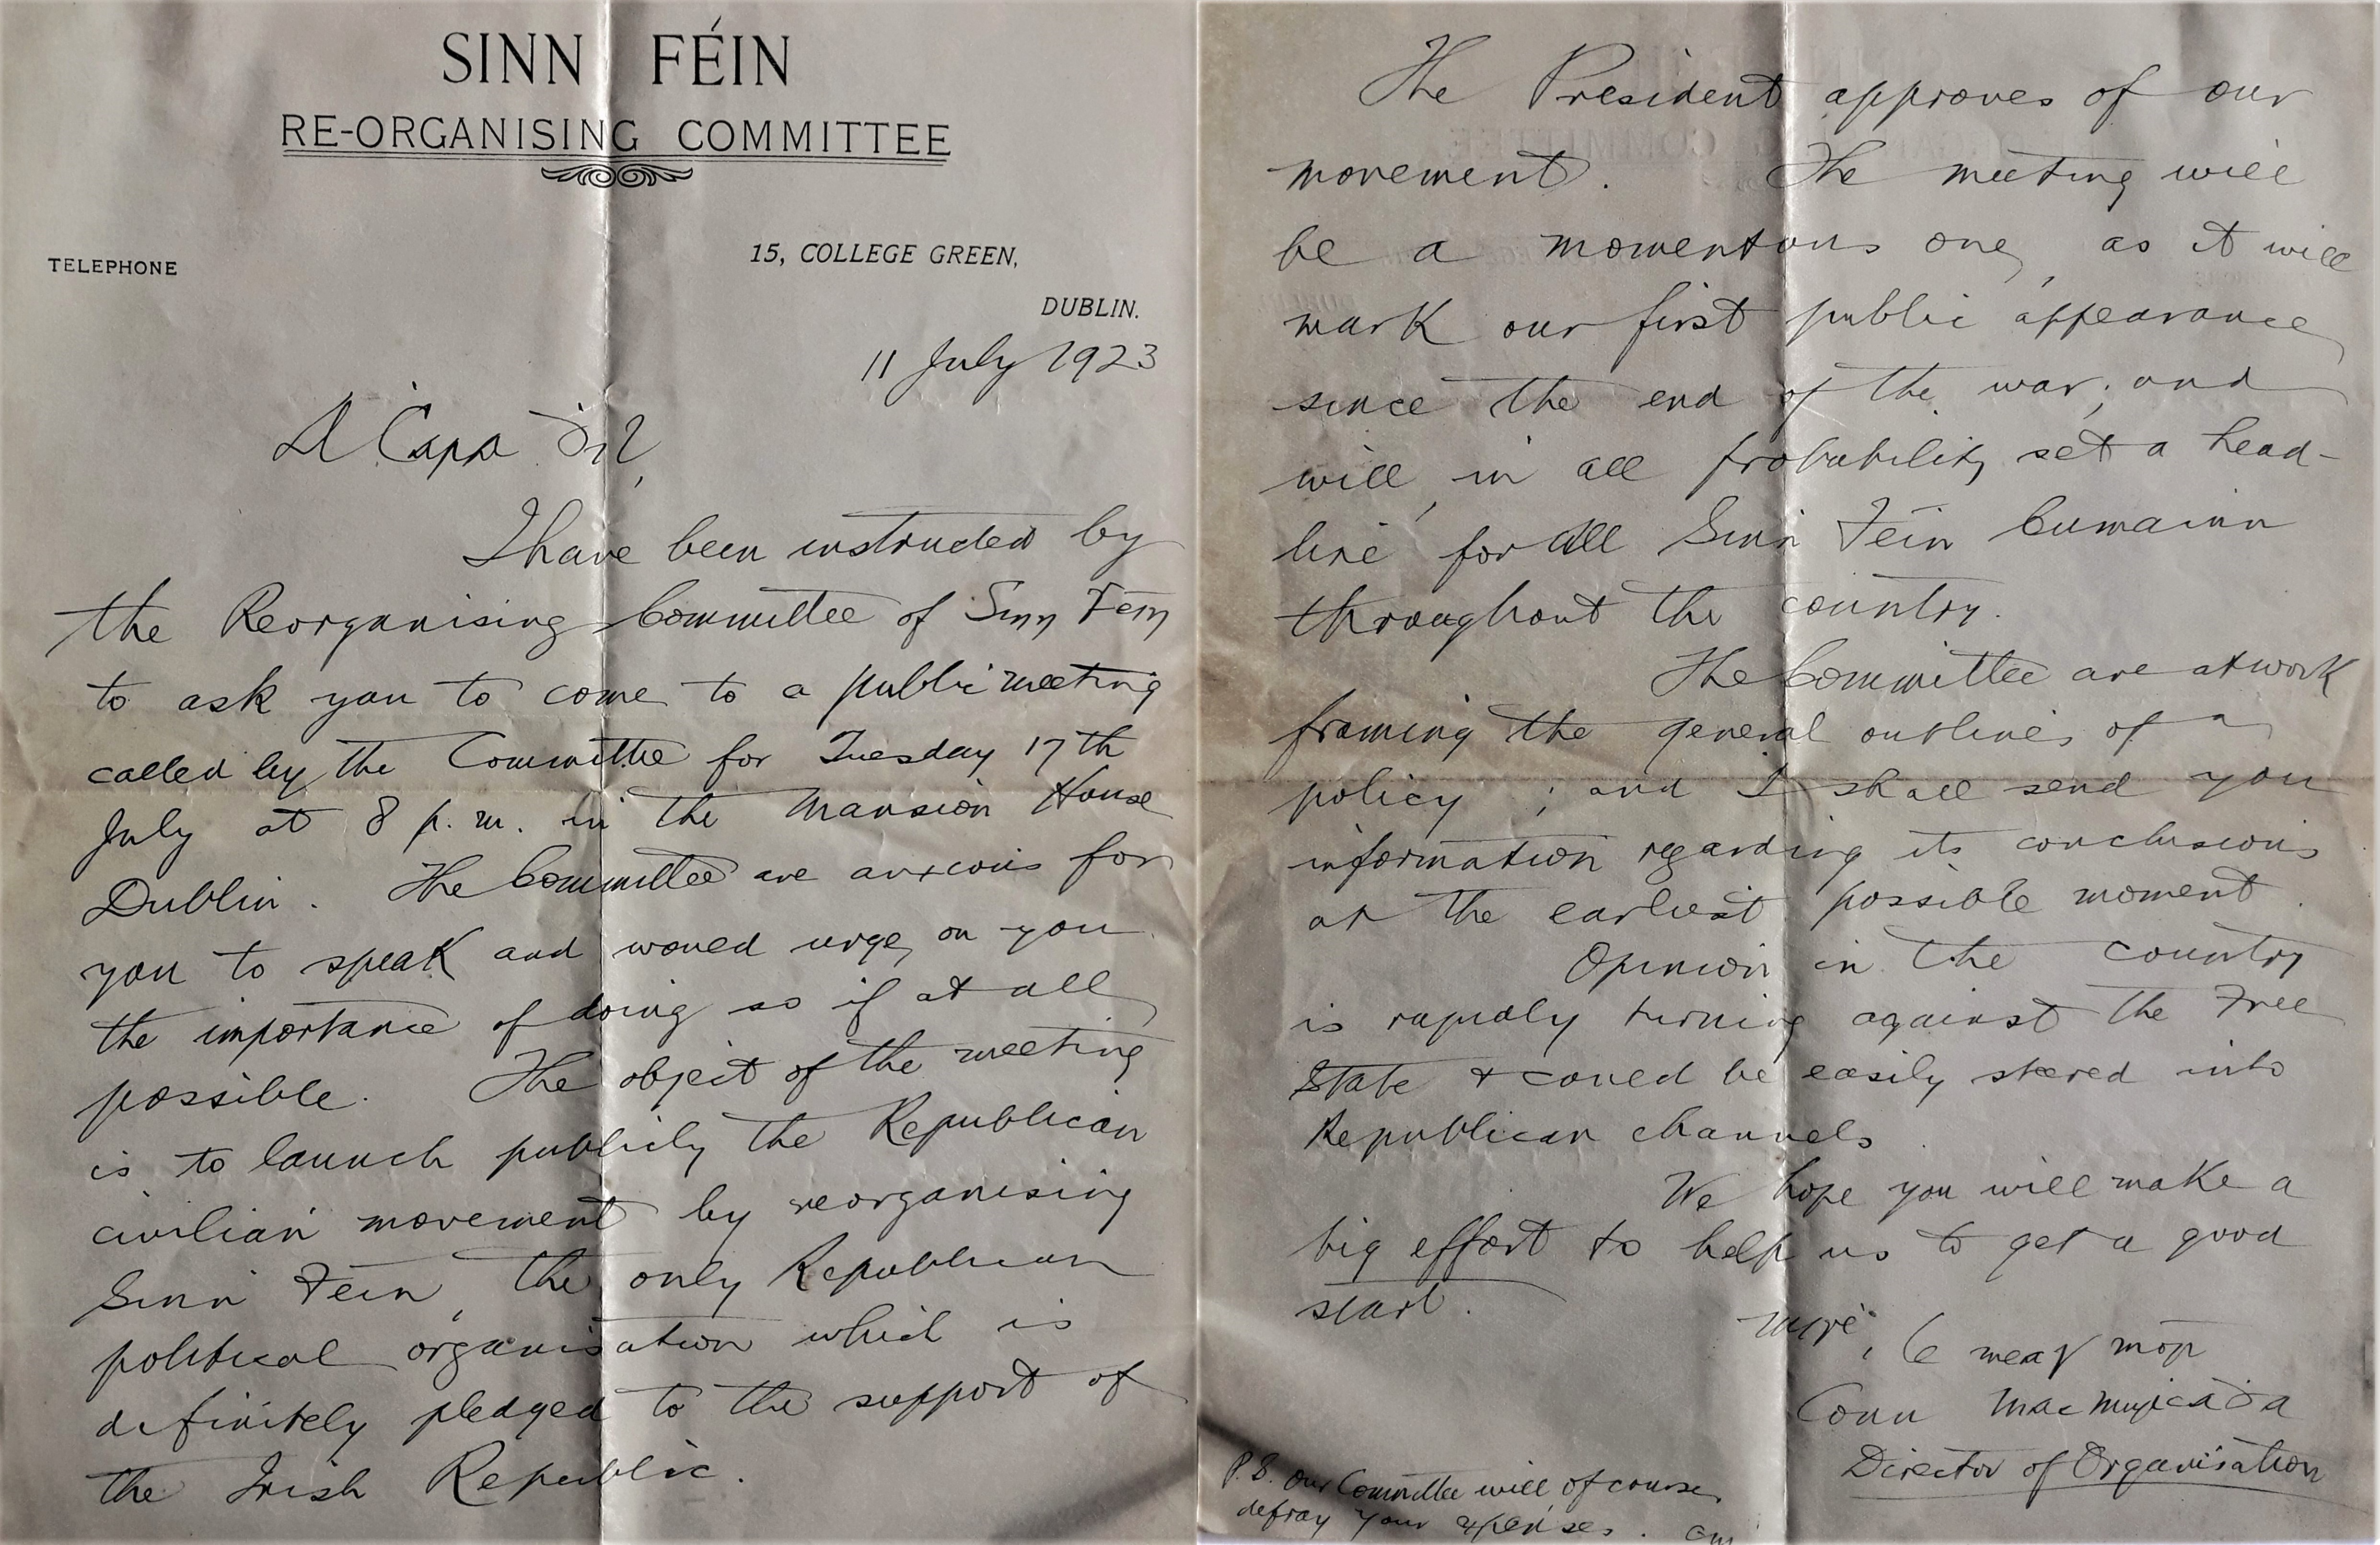 SINN FÉIN
RE-ORGANISING COMMITTEE
TELEPHONE
15, COLLEGE GREEN,
DUBLIN.
11 July 1923
A Ċara Ḋil,
I have been instructed by
the Reorganising Committee of Sinn Fein
to ask you to come to a public meeting
called by the Committee for Tuesday 17th
July at 8 p.m. in the Mansion House
Dublin. The Committee are anxious for
you to speak and would urge on you
the importance of doing so if at all
possible. The object of the meeting
is to launch publicly the Republican
civilian movement by reorganising
Sinn Féin, the only Republican
political organisation which is
definitely pledged to the support of
the Irish Republic.
The President approves of our
movement. The meeting will
be a momentous one, as it will
mark our first public appearance
since the end of the war; and
will, in all probability set a head-
line for all Sinn Féin Cumainn
throughout the country.
The Committee are at work
framing the general outlines of a
policy; and I shall send you
information regarding its conclusions
at the earliest possible moment.
Opinion in the country
is rapidly turning against the Free
State & could be easily steered into
Republican channels.
We hope you will make a
big effort to help us to get a good
start.
Mise, le meas mór
Conn
Director of Organisation
P.S. Our Committee will, of course,
defray your expenses.